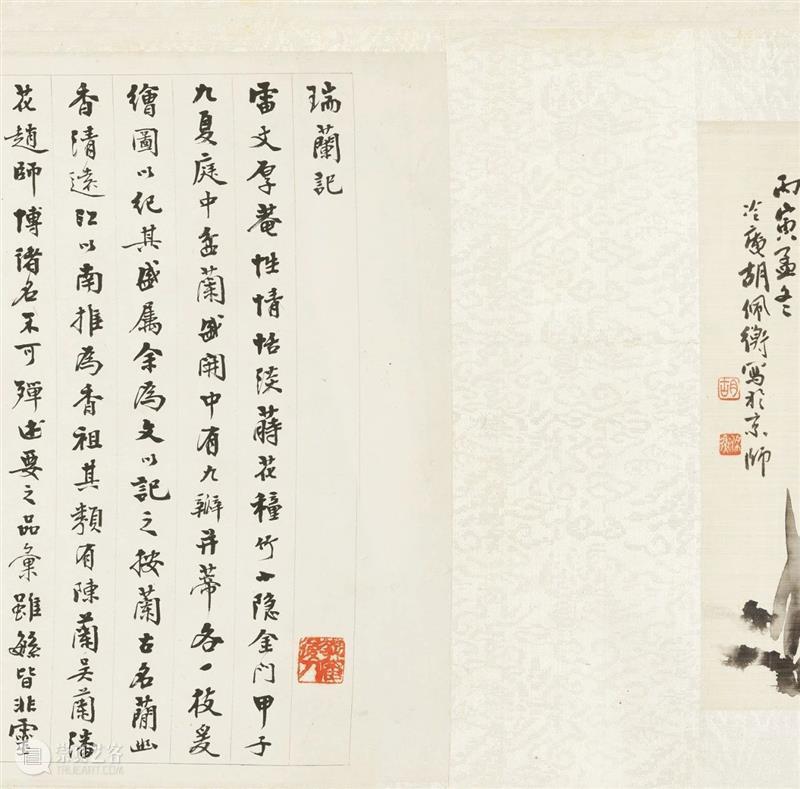 丙寅孟冬
冷庵胡佩衡寫於京師
瑞蘭記
雷丈厚菴性情恬淡蒔花種竹小隐金门甲子
九夏庭中盆蘭盛開中有九瓣并蒂各一枝爰
繪圖以紀其盛属余為文以記之按蘭古名蕑幽
香清遠江以南推為香祖其類有陳蘭吴蘭潘
花趙師博諸名不可殫述要之品彙雖繁皆非靈
崇真艺客
TRUEART.COM